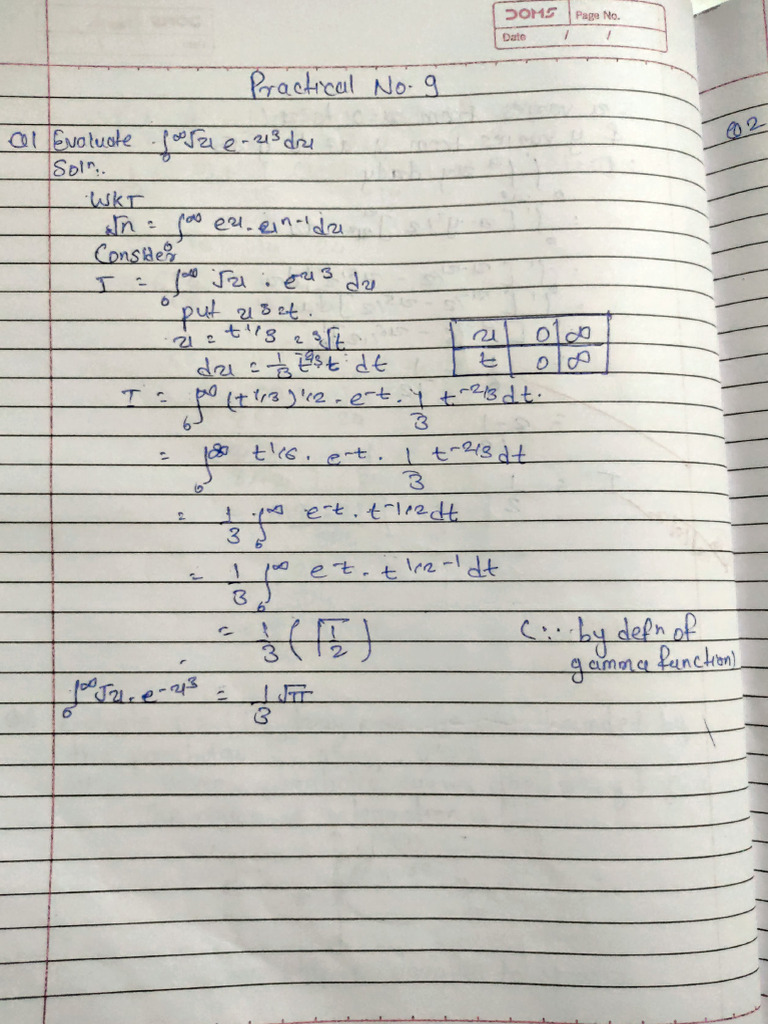 DOMS Page No.
Date / /
Practical No. 9
Q1 Evaluate ∫₀^∞ √x e^-x³ dx
Soln:.
WKT
√n = ∫₀^∞ e^x . x^n-1 dx
Consider
I = ∫₀^∞ √x . e^x³ dx
put x³ = t.
x = t^1/3 = ³√t
x 0 ∞
dx = 1/3 t^-2/3 dt
t 0 ∞
I = ∫₀^∞ (t^1/3)^1/2 . e^-t . 1/3 t^-2/3 dt.
= ∫₀^∞ t^1/6 . e^-t . 1/3 t^-2/3 dt
= 1/3 ∫₀^∞ e^-t . t^-1/2 dt
= 1/3 ∫₀^∞ e^-t . t^1/2-1 dt
= 1/3 (Γ1/2) (∵ by defn of
gamma function)
∫₀^∞ √x . e^-x³ = 1/3 √π
Q2